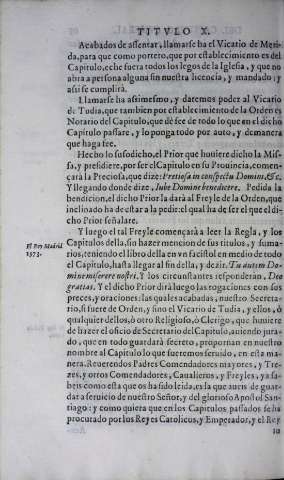 TITVLO X.
Acabados de assentar, llamarse ha el Vicario de Meri-
da, para que como portero, que por establecimiento es del
Capitulo, eche fuera todos los legos de la Iglesia, y que no
abra a persona alguna sin nuestra licencia, y mandado; y
assi se cumplirà.
Llamarse ha assimesmo, y daremos poder al Vicario
de Tudia, que tambien por establecimiento de la Orden es
Notario del Capitulo, que dè fee de todo lo que en el dicho
Capitulo passare, y lo ponga todo por auto, y de manera
que haga fee.
Hecho lo susodicho, el Prior que huuiere dicho la Mis-
sa, y presidiere, por ser el Capitulo en su Prouincia, comen-
çarà la Preciosa, que dize: Pretiosa in conspectu Domini, &c.
Y llegando donde dize, Iube Domine benedicere. Pedida la
bendicion, el dicho Prior la darà al Freyle de la Orden, que
inclinado ha de estar a la pedir: el qual ha de ser el que el di-
cho Prior señalare.
Y luego el tal Freyle començarà a leer la Regla, y los
Capitulos della, sin hazer mencion de sus titulos, y suma-
El Rey Madrid.
1573.
rios, teniendo el libro della en vn facistol en medio de todo
el Capitulo, hasta llegar al fin della, y dezir. Tu autem Do-
mine miserere nostri, y los circunstantes responderan, Deo
gratias. Y el dicho Prior dirà luego las rogaciones con sus
preces, y oraciones: las quales acabadas, nuestro Secreta-
rio, si fuere de Orden, y sino el Vicario de Tudia, y ellos, ò
qualquier dellos, ò otro Religioso, ò Clerigo, que huuiere
de hazer el oficio de Secretario del Capitulo, auiendo jura-
do, que en todo guardarà secreto, propornan en nuestro
nombre al Capitulo lo que fueremos seruido, en esta ma-
nera. Reuerendos Padres Comendadores mayores, y Tre-
zes, y otros Comendadores, Caualleros, y Freyles, ya sa-
beis como esta que os ha sido leida, es la que aueis de guar-
dar a seruicio de nuestro Señor, y del glorioso Apostol San-
tiago: y como quiera que en los Capitulos passados se ha
procurado por los Reyes Catolicos, y Emperador, y el Rey